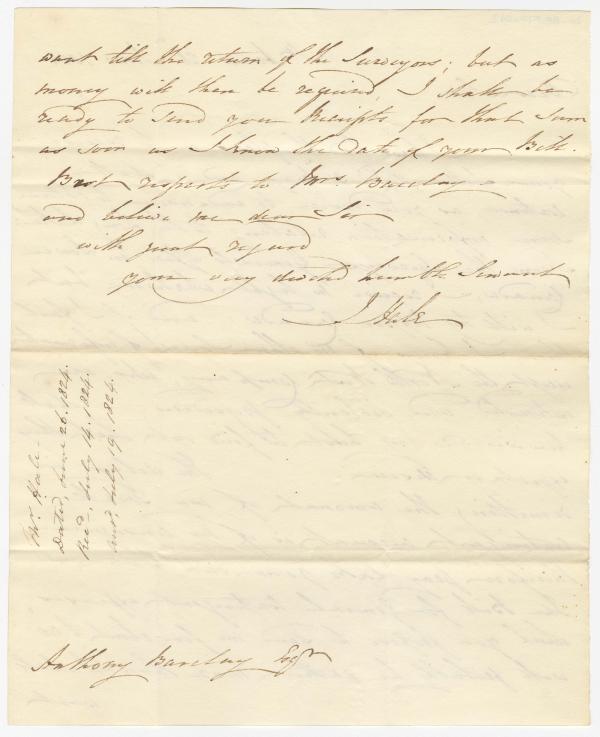 want till the return of the Surveyors; but as
money will then be required, I shall be
ready to send you Receipts for that Sum
as soon as I know the date of your Bill.
Best respects to Mrs. Barclay
and believe me dear Sir
with great regard
your very devoted humble Servant
J Hale
Mr. Hale.
Dated, June 26. 1824.
Recd., July 14. 1824.
Ansd, July 19. 1824.
Anthony Barclay Esqr